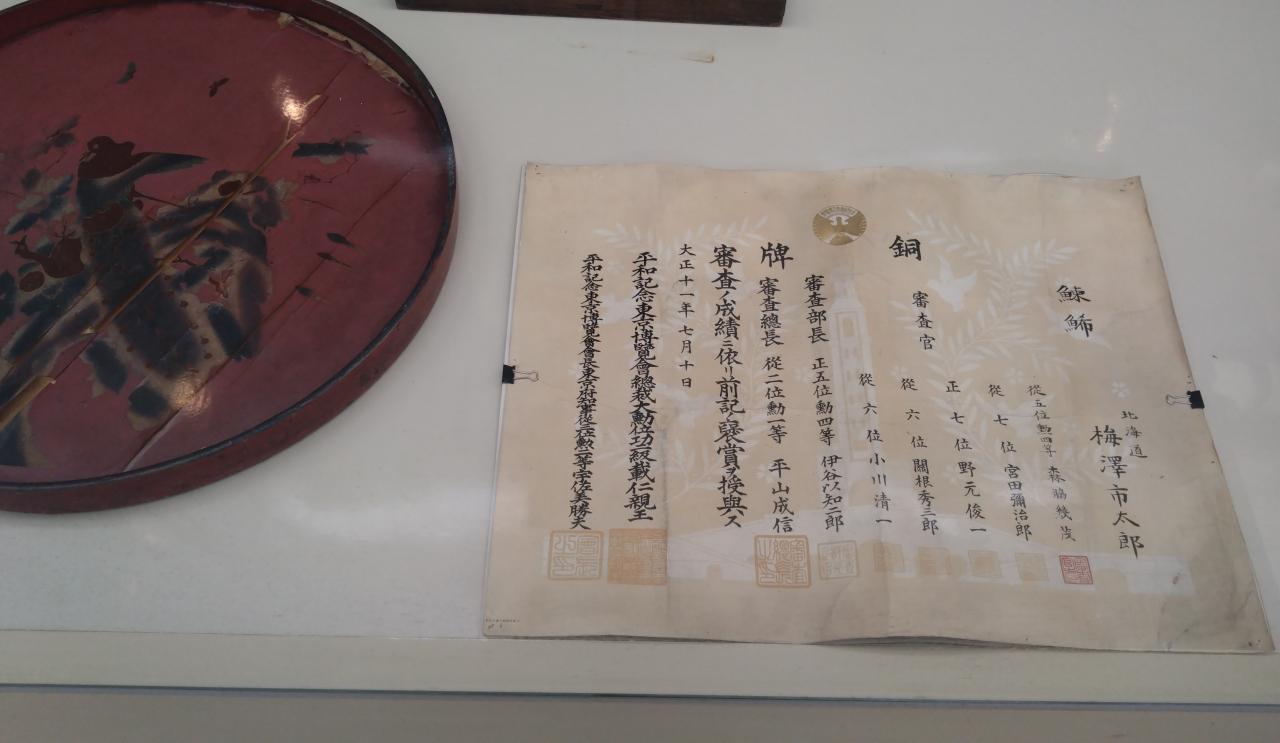 鰊鰤
北海道
梅澤市太郎
銅牌
審査官
從五位勲四等 森脇幾茂
從七位 宮田彌治郎
正七位 野元俊一
從六位 關根秀三郎
從六位 小川清一
審査部長 正五位勲四等 伊谷以知二郎
審査總長 從二位勲一等 平山成信
審査ノ成績ニ依リ前記ノ褒賞ヲ授與ス
大正十一年七月十日
平和記念東京博覽會總裁大勲位功二級載仁親王
平和記念東京博覽會會長東京府知事從三位勲二等宇佐美勝夫